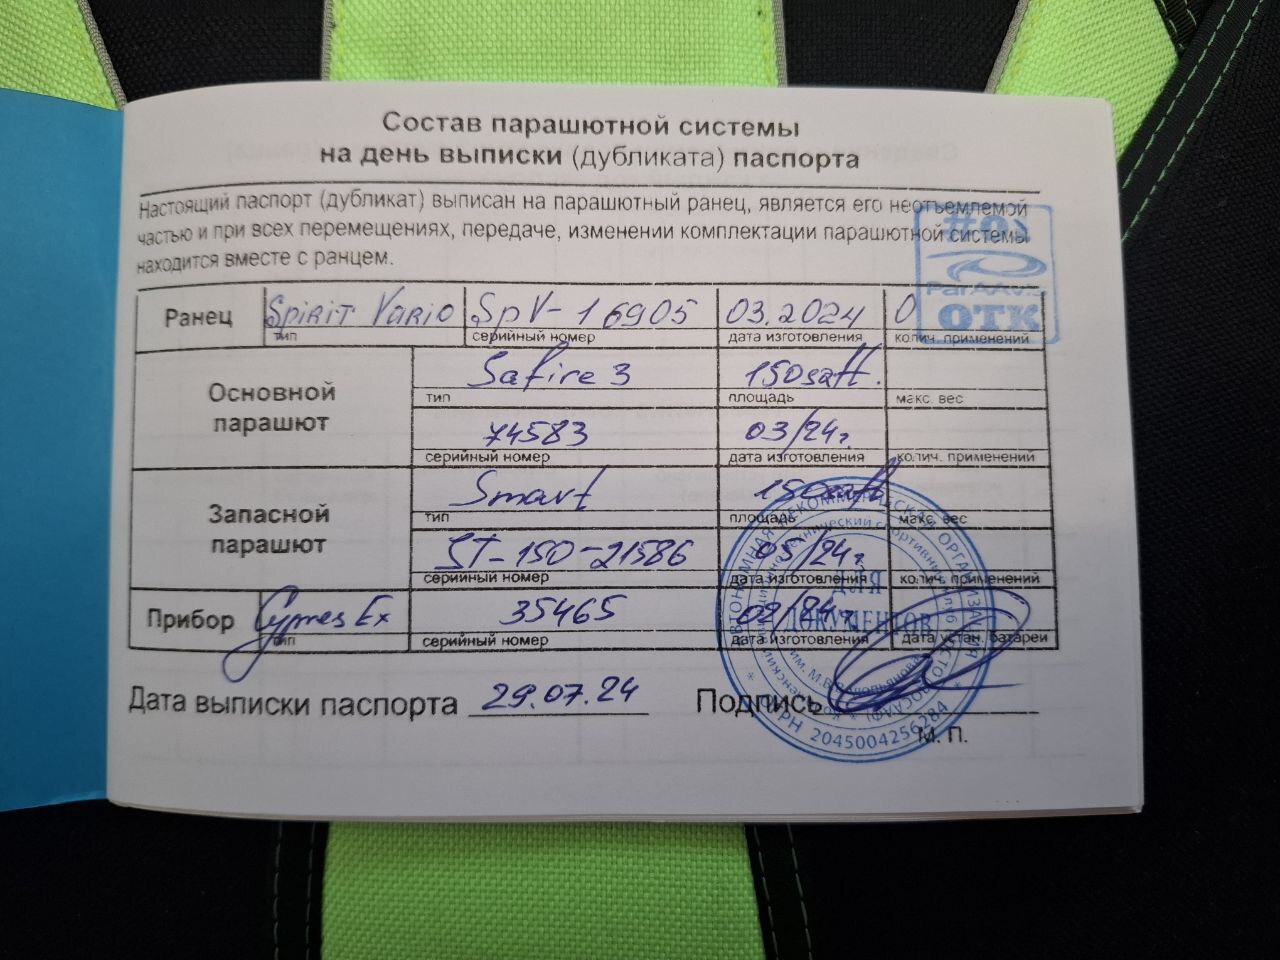 Состав парашютной системы
на день выписки (дубликата) паспорта
Настоящий паспорт (дубликат) выписан на парашютный ранец, является его неотъемлемой
частью и при всех перемещениях, передаче, изменении комплектации парашютной системы
находится вместе с ранцем.
ParAAvis
ОТК
Ранец Spirit Vario SpV-16905 03.2024 0
тип серийный номер дата изготовления колич. применений
Основной парашют
Safire 3 150saft.
тип площадь макс. вес
74583 03/24г
серийный номер дата изготовления колич. применений
Запасной парашют
Smart 150saft
тип площадь макс. вес
ST-150-21586 05/24г
серийный номер дата изготовления колич. применений
Прибор Cypres Ex 35465 02/24г.
тип серийный номер дата изготовления дата устан. батареи
Дата выписки паспорта 29.07.24 Подпись
М. П.
АВТОНОМНАЯ НЕКОММЕРЧЕСКАЯ ОРГАНИЗАЦИЯ
ДЛЯ
ДОКУМЕНТОВ
2045004256284